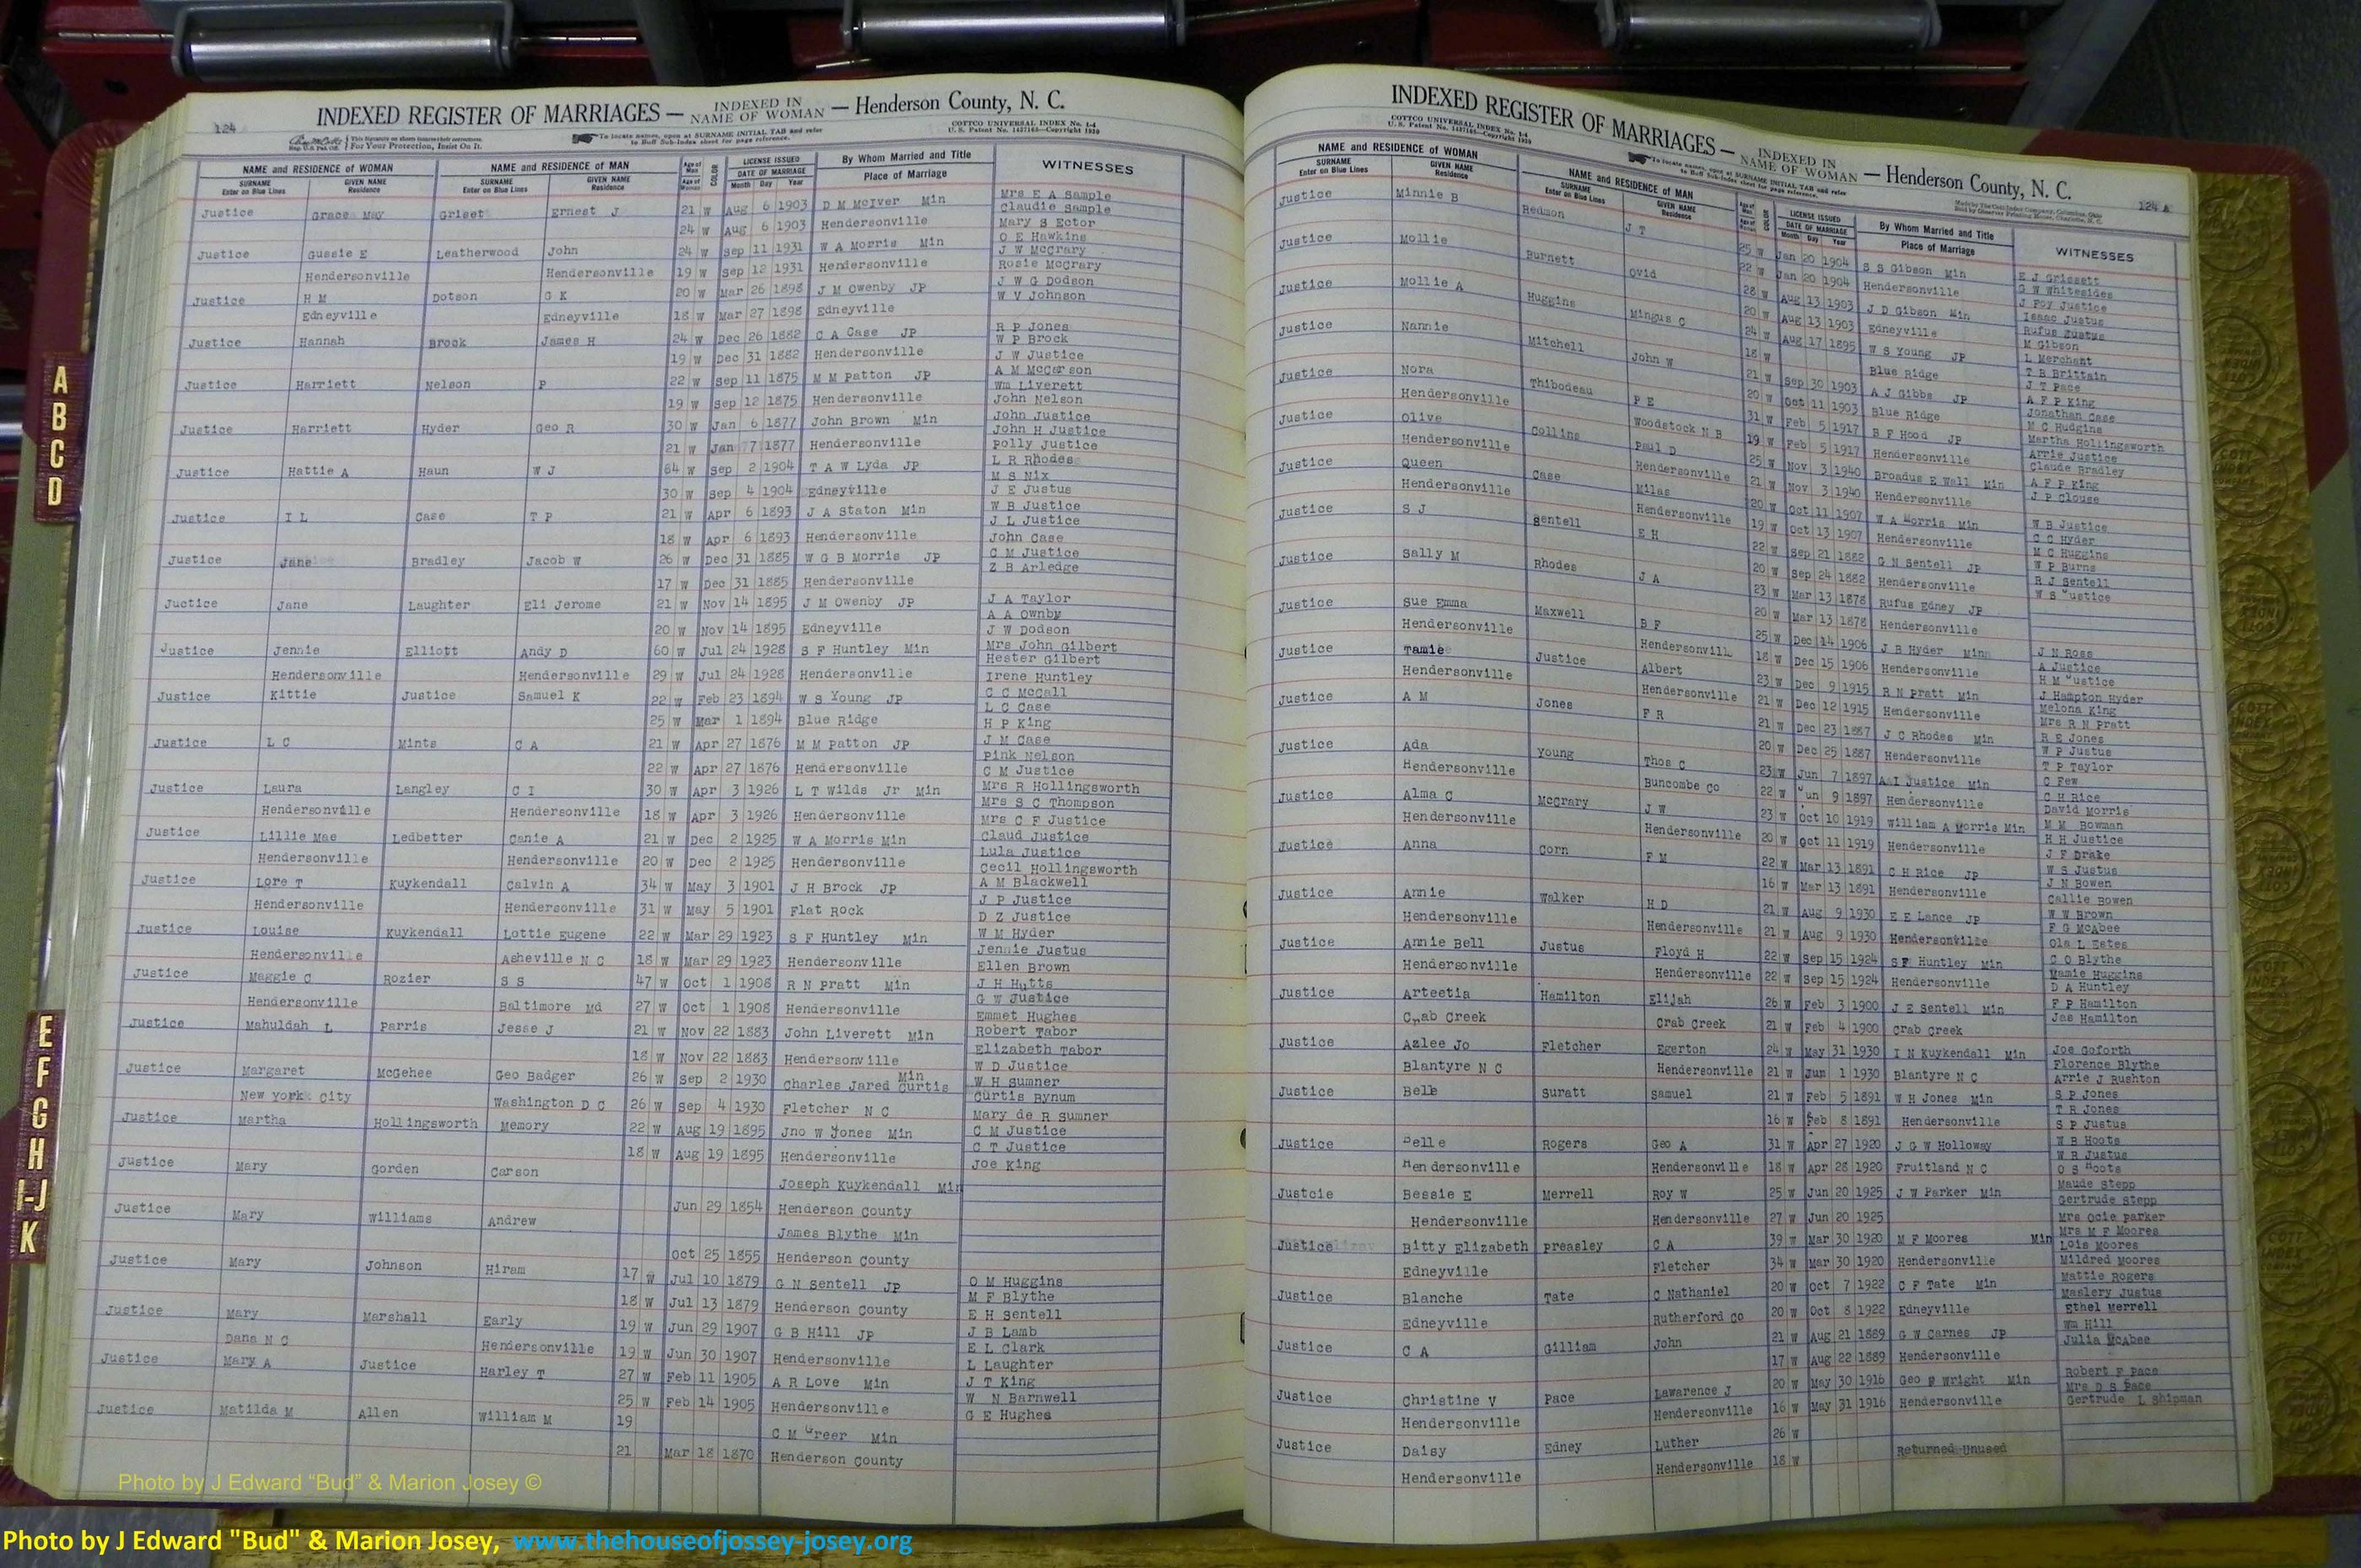 124
INDEXED REGISTER OF MARRIAGES — INDEXED IN NAME OF WOMAN — Henderson County, N. C.
This Signature on sheets insures index correctness. For Your Protection, Insist On It.
To locate names, open at SURNAME INITIAL TAB and refer to Buff Sub-Index sheet for page reference.
COTTCO UNIVERSAL INDEX No. 1-4
U. S. Patent No. 1427163—Copyright 1920
NAME and RESIDENCE OF WOMAN NAME and RESIDENCE OF MAN Age of Man COLOR LICENSE ISSUED By Whom Married and Title WITNESSES
SURNAME GIVEN NAME SURNAME GIVEN NAME Age of Woman DATE OF MARRIAGE Place of Marriage
Enter on Blue Lines Residence Enter on Blue Lines Residence Month Day Year
Justice Grace May Griset Ernest J 21 W Aug 6 1903 D M McIver Min Mrs E A Sample
Claudie Sample
24 W Aug 6 1903 Hendersonville Mary S Ector
Justice Gussie E Leatherwood John 24 W Sep 11 1931 W A Morris Min O E Hawkins
J W McCrary
Hendersonville Hendersonville 19 W Sep 12 1931 Hendersonville Rosie McCrary
Justice H M Dotson G K 20 W Mar 26 1898 J M Owenby JP J W G Dodson
W V Johnson
Edneyville Edneyville 18 W Mar 27 1898 Edneyville
Justice Hannah Brock James H 24 W Dec 26 1882 C A Case JP R P Jones
W P Brock
19 W Dec 31 1882 Hendersonville J W Justice
Justice Harriett Nelson P 22 W Sep 11 1875 M M Patton JP A M McCarson
Wm Liverett
19 W Sep 12 1875 Hendersonville John Nelson
Justice Harriett Hyder Geo R 30 W Jan 6 1877 John Brown Min John Justice
John H Justice
21 W Jan 7 1877 Hendersonville Polly Justice
Justice Hattie A Haun W J 64 W Sep 2 1904 T A W Lyda JP L R Rhodes
M S Nix
30 W Sep 4 1904 Edneyville J E Justus
Justice I L Case T P 21 W Apr 6 1893 J A Staton Min W B Justice
J L Justice
18 W Apr 6 1893 Hendersonville John Case
Justice Jane Bradley Jacob W 26 W Dec 31 1885 W G B Morris JP C M Justice
Z B Arledge
17 W Dec 31 1885 Hendersonville
Juctice Jane Laughter Eli Jerome 21 W Nov 14 1895 J M Owenby JP J A Taylor
A A Ownby
20 W Nov 14 1895 Edneyville J W Dodson
Justice Jennie Elliott Andy D 60 W Jul 24 1928 S F Huntley Min Mrs John Gilbert
Hester Gilbert
Hendersonville Hendersonville 29 W Jul 24 1928 Hendersonville Irene Huntley
Justice Kittie Justice Samuel K 22 W Feb 23 1894 W S Young JP C C McCall
L C Case
25 W Mar 1 1894 Blue Ridge H P King
Justice L C Mints C A 21 W Apr 27 1876 M M Patton JP J M Case
Pink Nelson
22 W Apr 27 1876 Hendersonville C M Justice
Justice Laura Langley C I 30 W Apr 3 1926 L T Wilds Jr Min Mrs R Hollingsworth
Mrs S C Thompson
Hendersonville Hendersonville 18 W Apr 3 1926 Hendersonville Mrs C F Justice
Justice Lillie Mae Ledbetter Canie A 21 W Dec 2 1925 W A Morris Min Claud Justice
Lula Justice
Hendersonville Hendersonville 20 W Dec 2 1925 Hendersonville Cecil Hollingsworth
Justice Lore T Kuykendall Calvin A 34 W May 3 1901 J H Brock JP A M Blackwell
J P Justice
Hendersonville Hendersonville 31 W May 5 1901 Flat Rock D Z Justice
Justice Louise Kuykendall Lottie Eugene 22 W Mar 29 1923 S F Huntley Min W M Hyder
Jennie Justus
Hendersonville Asheville N C 18 W Mar 29 1923 Hendersonville Ellen Brown
Justice Maggie C Rozier S S 47 W Oct 1 1908 R N Pratt Min J H Hutts
G W Justice
Hendersonville Baltimore Md 27 W Oct 1 1908 Hendersonville Emmet Hughes
Justice Mahuldah L Parris Jesse J 21 W Nov 22 1883 John Liverett Min Robert Tabor
Elizabeth Tabor
18 W Nov 22 1883 Hendersonville W D Justice
Justice Margaret McGehee Geo Badger 26 W Sep 2 1930 Charles Jared Curtis Min W H Sumner
Curtis Bynum
New York City Washington D C 26 W Sep 4 1930 Fletcher N C Mary de R Sumner
Justice Martha Hollingsworth Memory 22 W Aug 19 1895 Jno W Jones Min C M Justice
C T Justice
18 W Aug 19 1895 Hendersonville Joe King
Justice Mary Gorden Carson Joseph Kuykendall Min
Jun 29 1854 Henderson County
Justice Mary Williams Andrew James Blythe Min
Oct 25 1855 Henderson County
Justice Mary Johnson Hiram 17 W Jul 10 1879 G N Sentell JP O M Huggins
M F Blythe
18 W Jul 13 1879 Henderson County E H Sentell
Justice Mary Marshall Early 19 W Jun 29 1907 G B Hill JP J B Lamb
E L Clark
Dana N C Hendersonville 19 W Jun 30 1907 Hendersonville L Laughter
Justice Mary A Justice Harley T 27 W Feb 11 1905 A R Love Min J T King
W N Barnwell
25 W Feb 14 1905 Hendersonville G E Hughes
Justice Matilda M Allen William M 19 C M Greer Min
21 Mar 18 1870 Henderson County
INDEXED REGISTER OF MARRIAGES — INDEXED IN NAME OF WOMAN — Henderson County, N. C.
COTTCO UNIVERSAL INDEX No. 1-4
U. S. Patent No. 1427163—Copyright 1920
To locate names, open at SURNAME INITIAL TAB and refer to Buff Sub-Index sheet for page reference.
Made by The Cott Index Company, Columbus, Ohio
Sold by Observer Printing House, Charlotte, N. C.
124 A
NAME and RESIDENCE OF WOMAN NAME and RESIDENCE OF MAN LICENSE ISSUED By Whom Married and Title WITNESSES
SURNAME GIVEN NAME SURNAME GIVEN NAME DATE OF MARRIAGE Place of Marriage
Enter on Blue Lines Residence Enter on Blue Lines Residence Month Day Year
Justice Minnie B Redmon J T 25 W Jan 20 1904 S S Gibson Min E J Grissett
G W Whitesides
22 W Jan 20 1904 Hendersonville J Foy Justice
Justice Mollie Burnett Ovid 28 W Aug 13 1903 J D Gibson Min Isaac Justus
Rufus Justus
20 W Aug 13 1903 Edneyville M Gibson
Justice Mollie A Huggins Mingus C 24 W Aug 17 1895 W S Young JP L Merchant
T B Brittain
18 W Blue Ridge J T Pace
Justice Nannie Mitchell John W 21 W Sep 30 1903 A J Gibbs JP A F P King
Jonathan Case
20 W Oct 11 1903 Blue Ridge M C Hudgins
Justice Nora Thibodeau P E 31 W Feb 5 1917 B F Hood JP Martha Hollingsworth
Arrie Justice
Hendersonville Woodstock N B 19 W Feb 5 1917 Hendersonville Claude Bradley
Justice Olive Collins Paul D 25 W Nov 3 1940 Broadus E Wall Min A F P King
J P Clouse
Hendersonville Hendersonville 21 W Nov 3 1940 Hendersonville
Justice Queen Case Milas 20 W Oct 11 1907 W A Morris Min W B Justice
C C Hyder
Hendersonville Hendersonville 19 W Oct 13 1907 Hendersonville M C Huggins
Justice S J Sentell E H 22 W Sep 21 1882 G N Sentell JP W P Burns
R J Sentell
20 W Sep 24 1882 Hendersonville W S Justice
Justice Sally M Rhodes J A 23 W Mar 13 1878 Rufus Edney JP
20 W Mar 13 1878 Hendersonville
Justice Sue Emma Maxwell B F 25 W Dec 14 1906 J B Hyder Min J N Ross
A Justice
Hendersonville Hendersonvill 18 W Dec 15 1906 Hendersonville H M Justice
Justice Tamie Justice Albert 23 W Dec 9 1915 R N Pratt Min J Hampton Hyder
Melona King
Hendersonville Hendersonville 21 W Dec 12 1915 Hendersonville Mrs R N Pratt
Justice A M Jones F R 21 W Dec 23 1887 J C Rhodes Min R E Jones
W P Justus
20 W Dec 25 1887 Hendersonville T P Taylor
Justice Ada Young Thos C 23 W Jun 7 1897 A I Justice Min C Few
C H Rice
Hendersonville Buncombe Co 22 W Jun 9 1897 Hendersonville David Morris
Justice Alma C McCrary J W 23 W Oct 10 1919 William A Morris Min M M Bowman
H H Justice
Hendersonville Hendersonville 20 W Oct 11 1919 Hendersonville J F Drake
Justice Anna Corn F M 22 W Mar 13 1891 C H Rice JP W S Justus
J N Bowen
16 W Mar 13 1891 Hendersonville Callie Bowen
Justice Annie Walker H D 21 W Aug 9 1930 E E Lance JP W W Brown
F G McAbee
Hendersonville Hendersonville 21 W Aug 9 1930 Hendersonville Ola L Estes
Justice Annie Bell Justus Floyd H 22 W Sep 15 1924 S F Huntley Min C O Blythe
Mamie Huggins
Hendersonville Hendersonville 22 W Sep 15 1924 Hendersonville D A Huntley
Justice Arteetia Hamilton Elijah 26 W Feb 3 1900 J E Sentell Min F P Hamilton
Jas Hamilton
Crab Creek Crab Creek 21 W Feb 4 1900 Crab Creek
Justice Azlee Jo Fletcher Egerton 24 W May 31 1930 I N Kuykendall Min Joe Goforth
Florence Blythe
Blantyre N C Hendersonville 21 W Jun 1 1930 Blantyre N C Arrie J Rushton
Justice Belle Suratt Samuel 21 W Feb 5 1891 W H Jones Min S P Jones
T R Jones
16 W Feb 8 1891 Hendersonville S P Justus
Justice Belle Rogers Geo A 31 W Apr 27 1920 J G W Holloway W B Hoots
W R Justus
Hendersonville Hendersonville 18 W Apr 28 1920 Fruitland N C O S Hoots
Justcie Bessie E Merrell Roy W 25 W Jun 20 1925 J W Parker Min Maude Stepp
Gertrude Stepp
Hendersonville Hendersonville 27 W Jun 20 1925 Mrs Ocie Parker
Justice Bitty Elizabeth Preasley C A 39 W Mar 30 1920 M F Moores Min Mrs M F Moores
Lois Moores
Edneyville Fletcher 34 W Mar 30 1920 Hendersonville Mildred Moores
Justice Blanche Tate C Nathaniel 20 W Oct 7 1922 C F Tate Min Mattie Rogers
Maslery Justus
Edneyville Rutherford Co 20 W Oct 8 1922 Edneyville Ethel Merrell
Justice C A Gilliam John 21 W Aug 21 1889 G W Carnes JP Wm Hill
Julia McAbee
17 W Aug 22 1889 Hendersonville
Justice Christine V Pace Lawarence J 20 W May 30 1916 Geo W Wright Min Robert F Pace
Mrs D S Pace
Hendersonville Hendersonville 16 W May 31 1916 Hendersonville Gertrude L Shipman
Justice Daisy Edney Luther 26 W
Returned Unused
Hendersonville Hendersonville 18 W
A
B
C
D
E
F
G
H
I-J
K
Photo by J Edward “Bud” & Marion Josey ©
Photo by J Edward "Bud" & Marion Josey, www.thehouseofjossey-josey.org